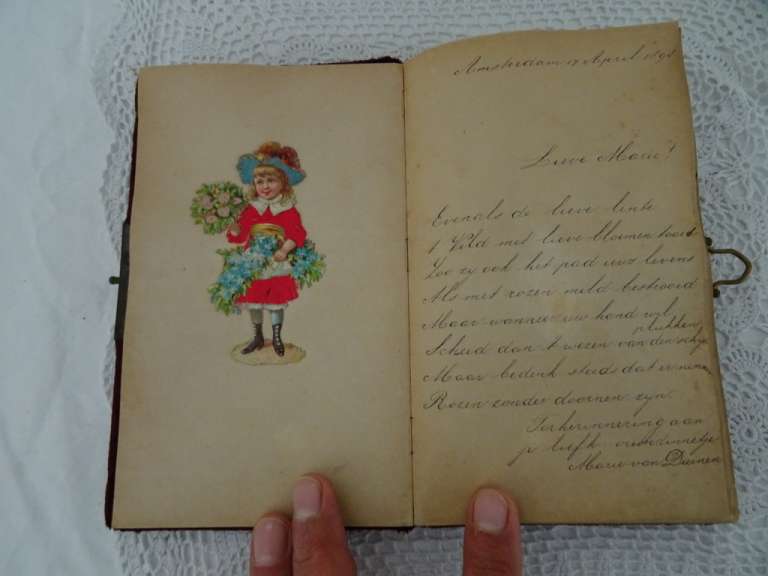 Amsterdam 17 April 189
Lieve Marie!
Evenals de lieve lente
't Veld met lieve bloemen tooit
Zoo zy ook het pad uws levens
Als met rozen mild bestrooid
Maar wanneer uw hand wil
plukken,
Scheid dan 't wezen van den schyn
Maar bedenk steeds dat er nimmer
Rozen zonder doornen zyn.
Ter herinnering aan
je liefh. vriendinnetje
Marie van Duinen